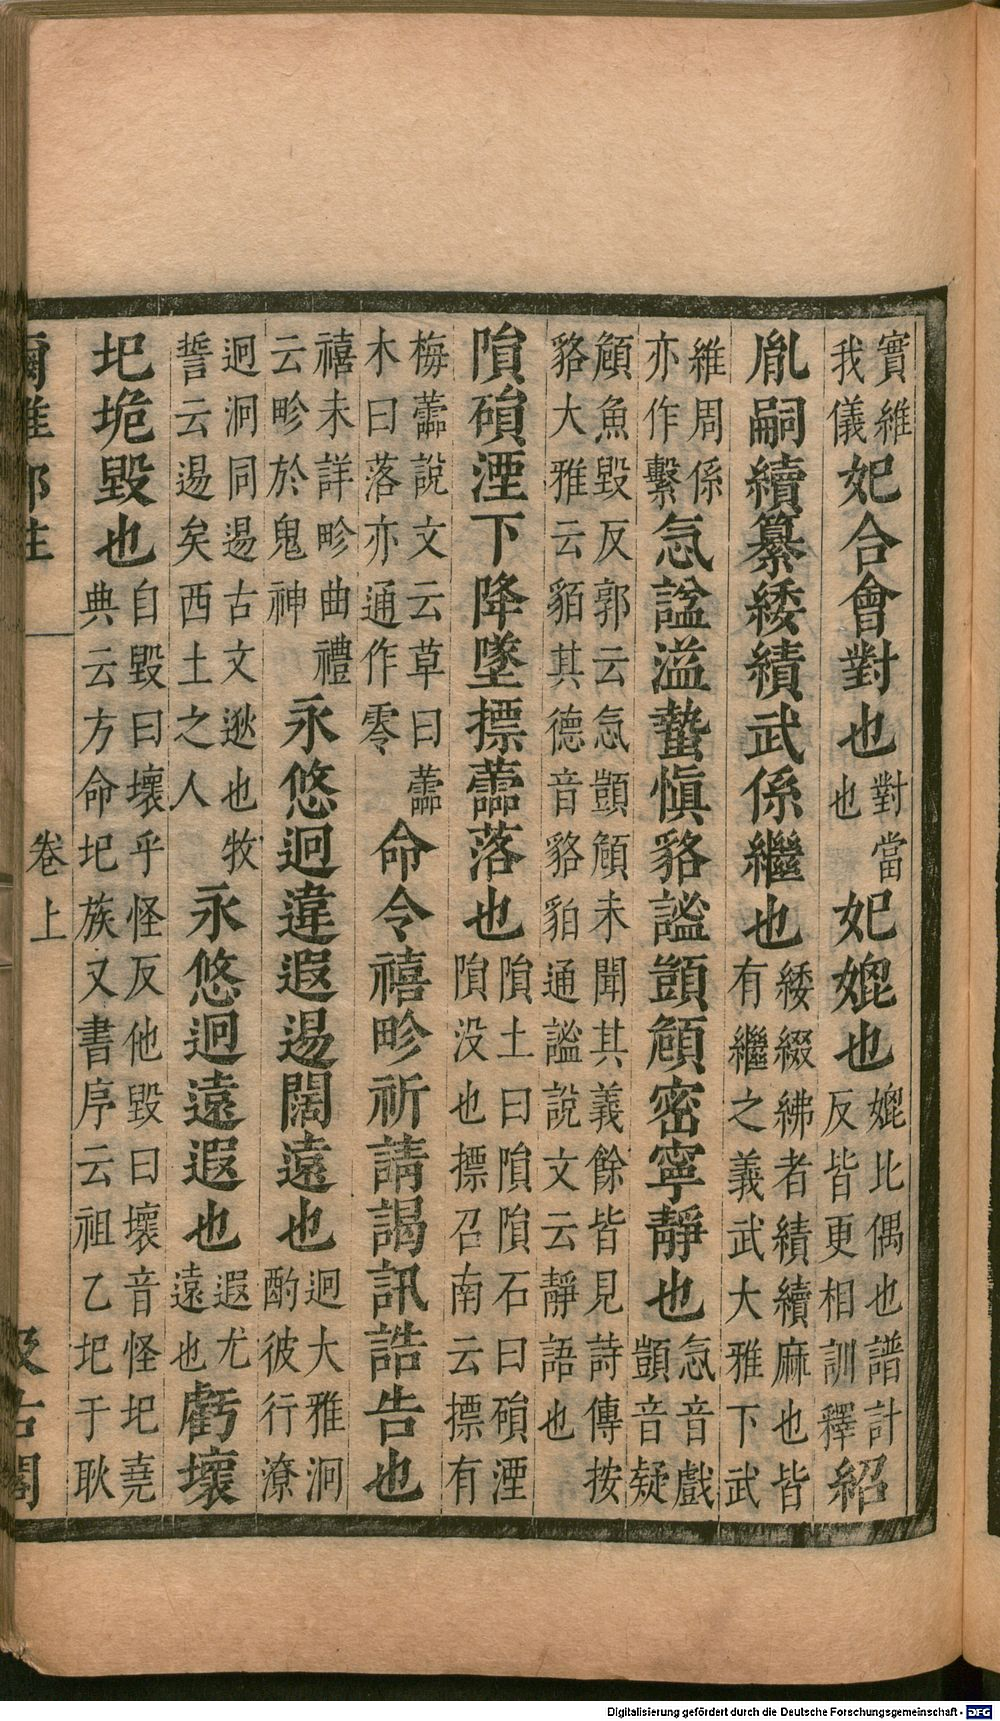 實維
我儀
妃合會對也
對當
也
妃媲也
媲比偶也譜計
反皆更相訓釋
紹
胤嗣續纂緌績武係繼也
緌綴紼者績續麻也皆
有繼之義武大雅下武
維周係
亦作繫
忥諡溢蟄慎貉謐顗頠密寧靜也
忥音戲
顗音疑
頠魚毀反郭云忥顗頠未聞其義餘皆見詩傳按
貉大雅云貊其德音貉貊通謐說文云靜語也
隕磒湮下降墜摽蘦落也
隕土曰隕隕石曰磒湮
隕没也摽召南云摽有
梅蘦說文云草曰蘦
木曰落亦通作零
命令禧畛祈請謁訊誥告也
禧未詳畛曲禮
云畛於鬼神
永悠迥違遐逷闊遠也
迥大雅泂
酌彼行潦
迥泂同逷古文逖也牧
誓云逷矣西土之人
永悠迥遠遐也
遐尤
遠也
虧壞
圮垝毀也
自毀曰壞乎怪反他毀曰壞音怪圮堯
典云方命圮族又書序云祖乙圮于耿
爾雅郭注
卷上
汲古閣
Digitalisierung gefördert durch die Deutsche Forschungsgemeinschaft - DFG